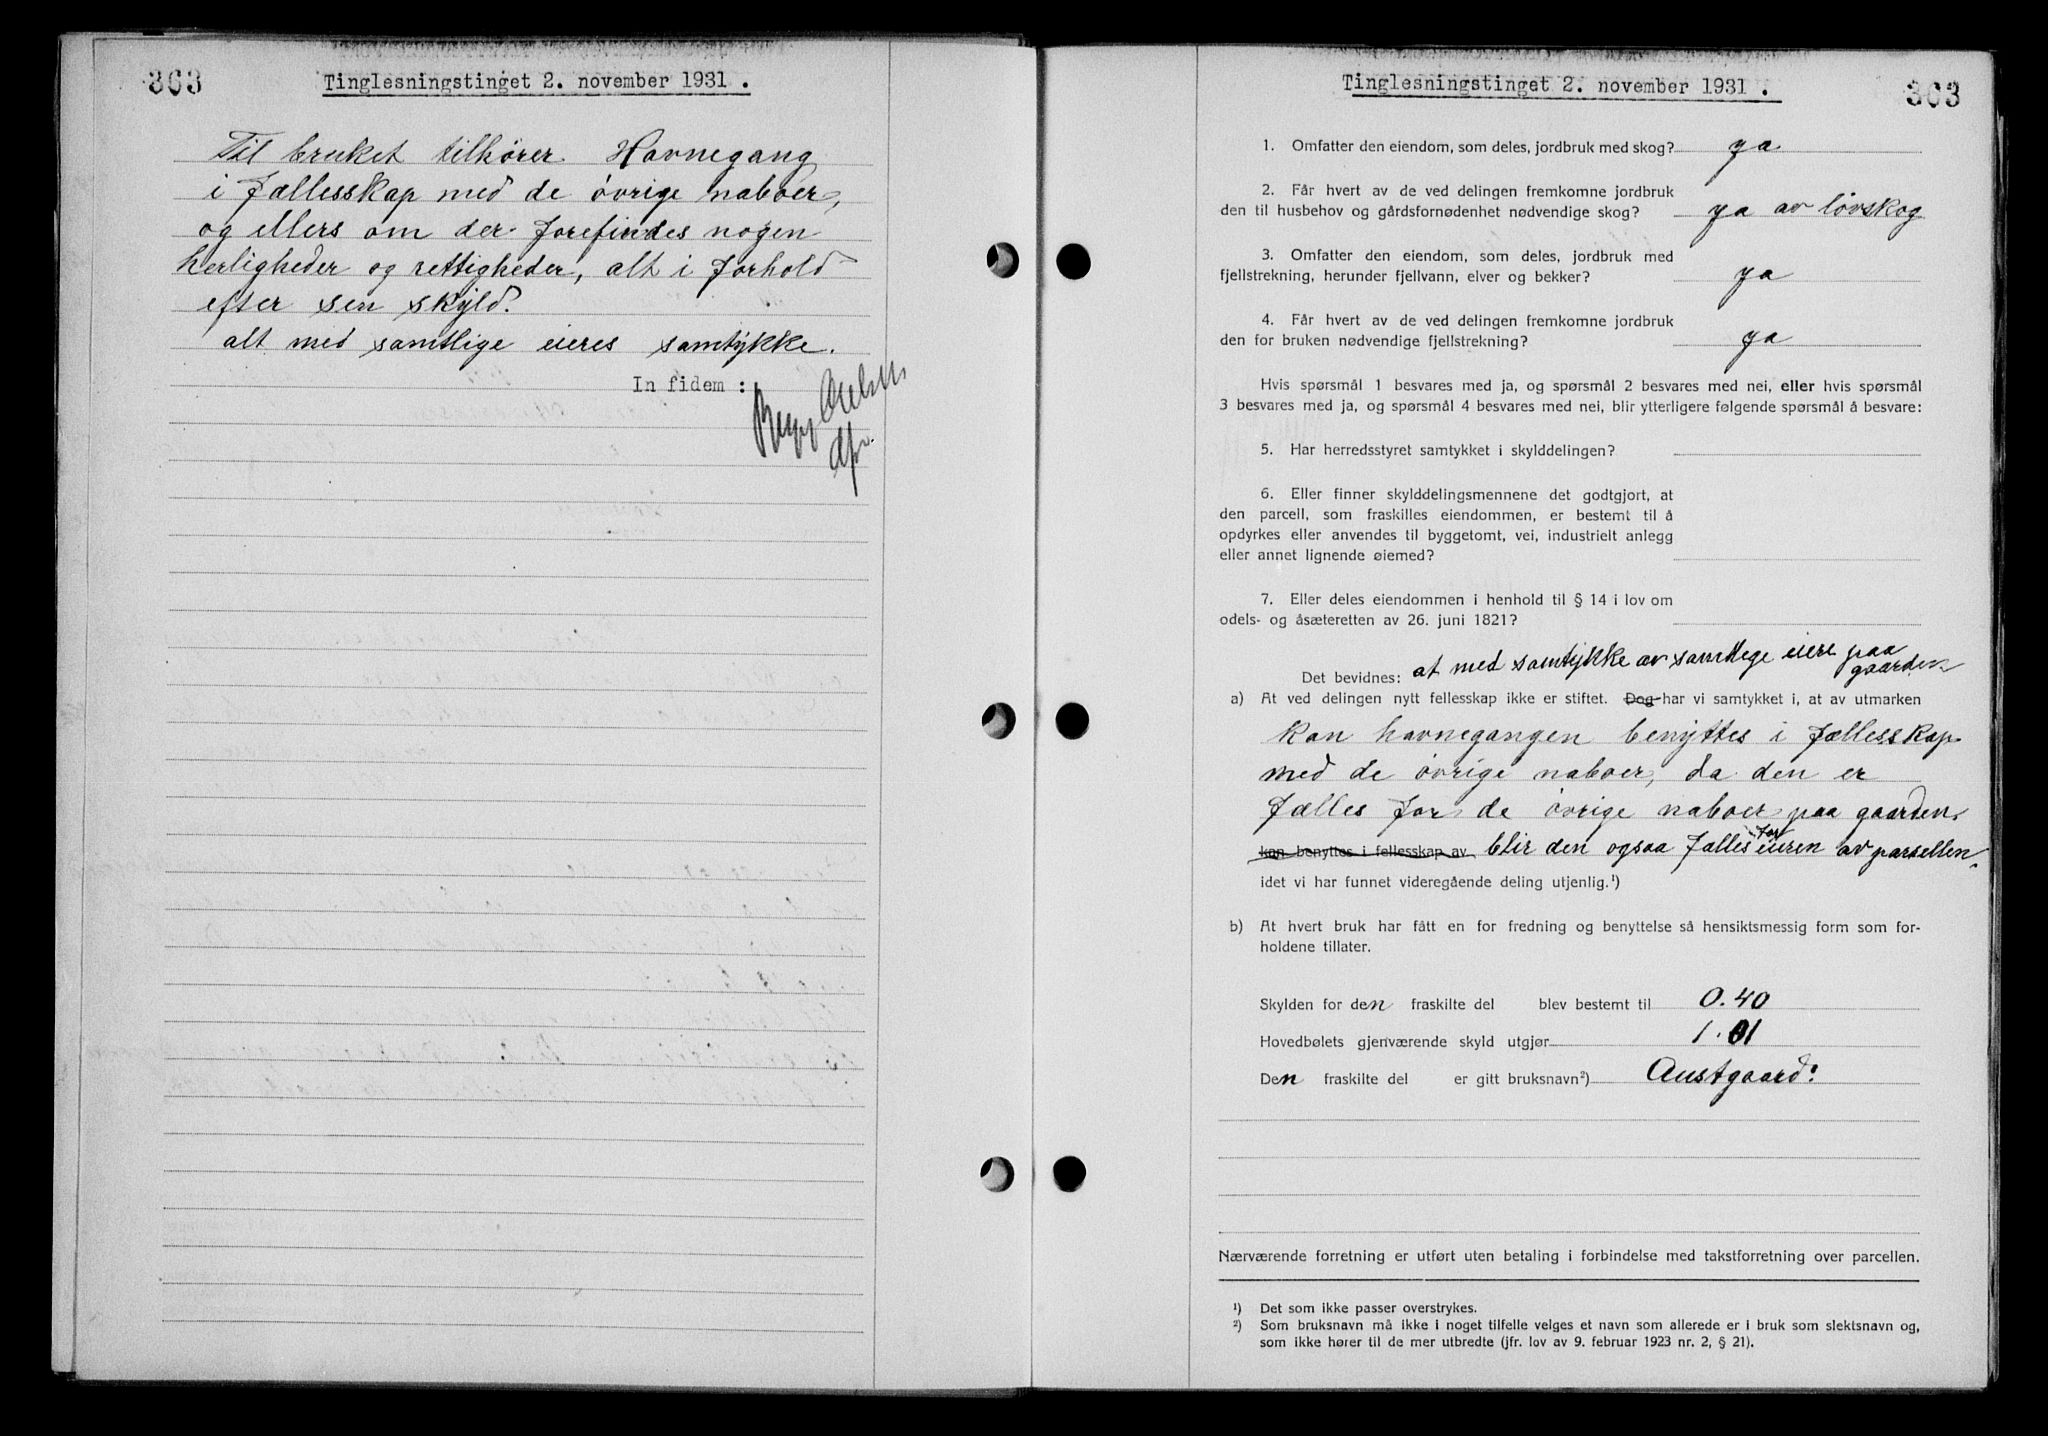 363
Tinglesningstinget 2. november 1931.
Til bruket tilhører Havnegang
i fællesskap med de øvrige naboer,
og ellers om der forefindes nogen
herligheder og rettigheder, alt i forhold
efter sin skyld.
alt med samtlige eieres samtykke.
In fidem :
dfr.
Tinglesningstinget 2. november 1931.
363
1. Omfatter den eiendom, som deles, jordbruk med skog? ya
2. Får hvert av de ved delingen fremkomne jordbruk
den til husbehov og gårdsfornødenhet nødvendige skog? ya av løvskog
3. Omfatter den eiendom, som deles, jordbruk med
fjellstrekning, herunder fjellvann, elver og bekker? ya
4. Får hvert av de ved delingen fremkomne jordbruk
den for bruken nødvendige fjellstrekning? ya
Hvis spørsmål 1 besvares med ja, og spørsmål 2 besvares med nei, eller hvis spørsmål
3 besvares med ja, og spørsmål 4 besvares med nei, blir ytterligere følgende spørsmål å besvare:
5. Har herredsstyret samtykket i skylddelingen?
6. Eller finner skylddelingsmennene det godtgjort, at
den parcell, som fraskilles eiendommen, er bestemt til å
opdyrkes eller anvendes til byggetomt, vei, industrielt anlegg
eller annet lignende øiemed?
7. Eller deles eiendommen i henhold til § 14 i lov om
odels- og åsæteretten av 26. juni 1821?
Det bevidnes: at med samtykke av samtlege eiere paa
gaarden
a) At ved delingen nytt fellesskap ikke er stiftet. Dog har vi samtykket i, at av utmarken
kan havnegangen benyttes i fællesskap
med de øvrige naboer, da den er
fælles for de øvrige naboer paa gaarden.
kan benyttes i fellesskap av blir den ogsaa fælles for eieren av parsellen,
idet vi har funnet videregående deling utjenlig.¹)
b) At hvert bruk har fått en for fredning og benyttelse så hensiktsmessig form som for-
holdene tillater.
Skylden for den fraskilte del blev bestemt til 0.40
Hovedbølets gjenværende skyld utgjør 1.01
Den fraskilte del er gitt bruksnavn²) Austgaard:
Nærværende forretning er utført uten betaling i forbindelse med takstforretning over parcellen.
¹) Det som ikke passer overstrykes.
²) Som bruksnavn må ikke i noget tilfelle velges et navn som allerede er i bruk som slektsnavn og,
som ikke hører til de mer utbredte (jfr. lov av 9. februar 1923 nr. 2, § 21).